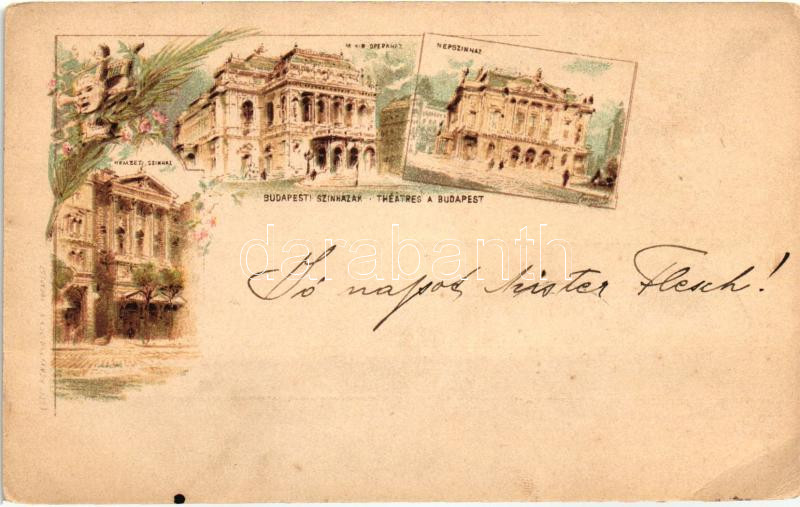 M. KIR. OPERAHÁZ
NÉPSZINHÁZ
NEMZETI SZINHÁZ
BUDAPESTI SZINHÁZAK · THÉATRES A BUDAPEST
darabanth
Jó napot Mister Flesch!